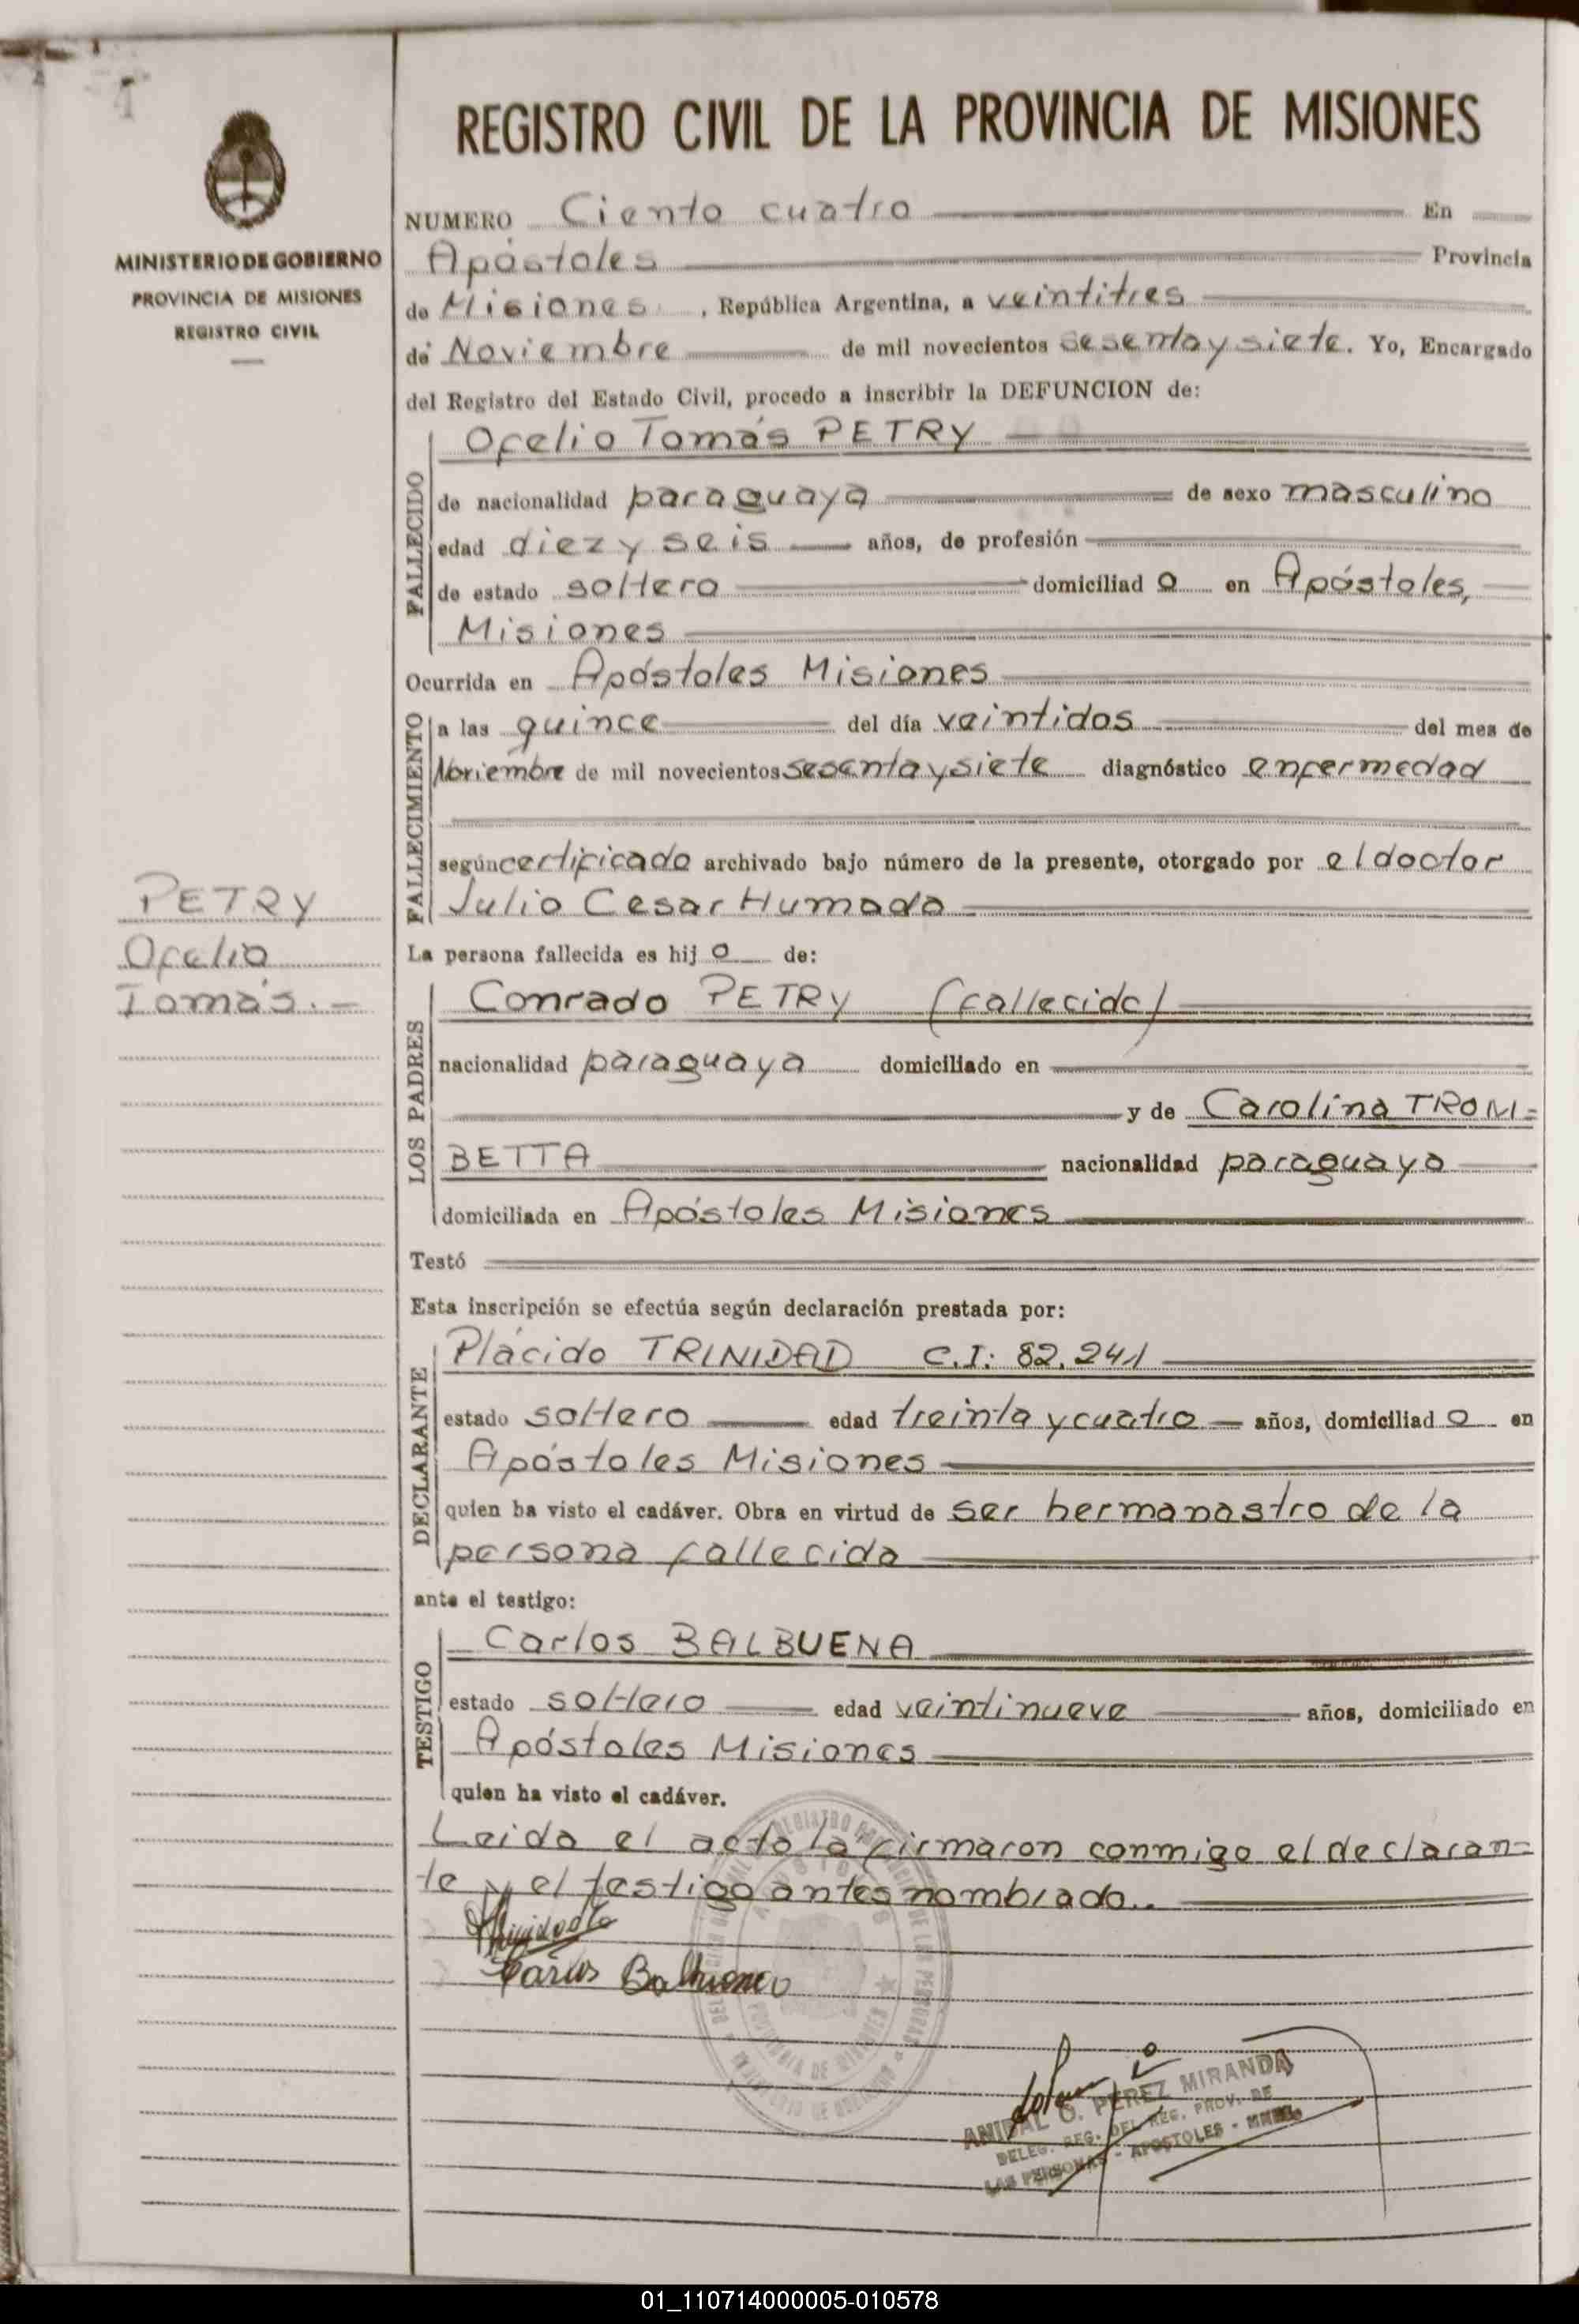 REGISTRO CIVIL DE LA PROVINCIA DE MISIONES
MINISTERIO DE GOBIERNO
PROVINCIA DE MISIONES
REGISTRO CIVIL
NUMERO Ciento cuatro En
Apóstoles Provincia
de Misiones, República Argentina, a veintitres
de Noviembre de mil novecientos sesenta y siete. Yo, Encargado
del Registro del Estado Civil, procedo a inscribir la DEFUNCION de:
FALLECIDO
Ofelio Tomás PETRY
de nacionalidad paraguaya de sexo masculino
edad diez y seis años, de profesión
de estado soltero domiciliad o en Apóstoles,
Misiones
Ocurrida en Apóstoles Misiones
FALLECIMIENTO
a las quince del día veintidos del mes de
Noviembre de mil novecientos sesenta y siete diagnóstico enfermedad
según certificado archivado bajo número de la presente, otorgado por el doctor
Julio Cesar Humada
PETRY
Ofelio
Tomás.-
La persona fallecida es hij o de:
LOS PADRES
Conrado PETRY (fallecido)
nacionalidad paraguaya domiciliado en
y de Carolina TROM=
BETTA nacionalidad paraguaya
domiciliada en Apóstoles Misiones
Testó
Esta inscripción se efectúa según declaración prestada por:
DECLARANTE
Plácido TRINIDAD C.I: 82.241
estado soltero edad treinta y cuatro años, domiciliad o en
Apóstoles Misiones
quien ha visto el cadáver. Obra en virtud de ser hermanastro de la
persona fallecida
ante el testigo:
TESTIGO
Carlos BALBUENA
estado soltero edad veintinueve años, domiciliado en
Apóstoles Misiones
quien ha visto el cadáver.
Leida el acta la firmaron conmigo el declaran=
te y el testigo antes nombrado..
Carlos Balbuena
ANIBAL O. PEREZ MIRANDA
DELEG. REG. DEL REG. PROV. DE
LAS PERSONAS - APOSTOLES - MNES.
01_110714000005-010578